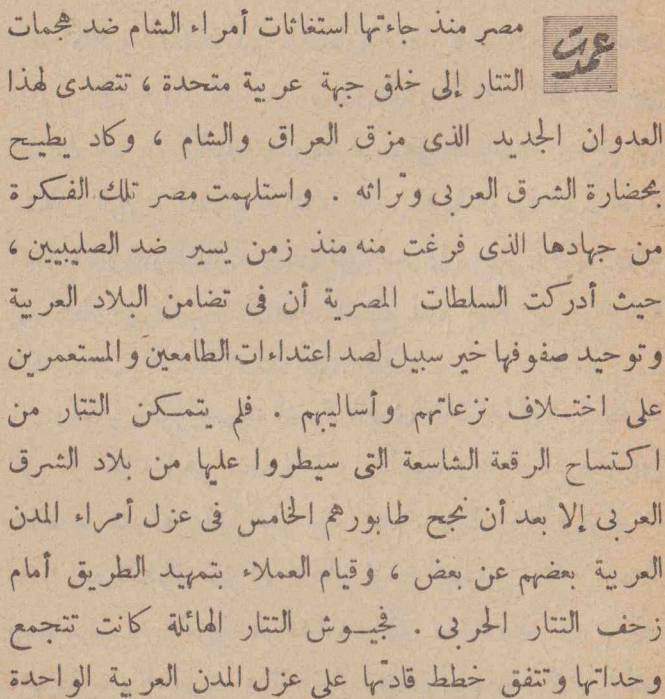 عمدت مصر منذ جاءتها استغاثات أمراء الشام ضد هجمات
التتار إلى خلق جبهة عربية متحدة ، تتصدى لهذا
العدوان الجديد الذى مزق العراق والشام ، وكاد يطيح
بحضارة الشرق العربى وتراثه . واستلهمت مصر تلك الفكرة
من جهادها الذى فرغت منه منذ زمن يسير ضد الصليبيين ،
حيث أدركت السلطات المصرية أن فى تضامن البلاد العربية
وتوحيد صفوفها خير سبيل لصد اعتداءات الطامعين والمستعمرين
على اختلاف نزعاتهم وأساليبهم . فلم يتمكن التتار من
اكتساح الرقعة الشاسعة التى سيطروا عليها من بلاد الشرق
العربى إلا بعد أن نجح طابورهم الخامس فى عزل أمراء المدن
العربية بعضهم عن بعض ، وقيام العملاء بتمهيد الطريق أمام
زحف التتار الحربى . فجيوش التتار الهائلة كانت تتجمع
وحداتها وتتفق خطط قادتها على عزل المدن العربية الواحدة